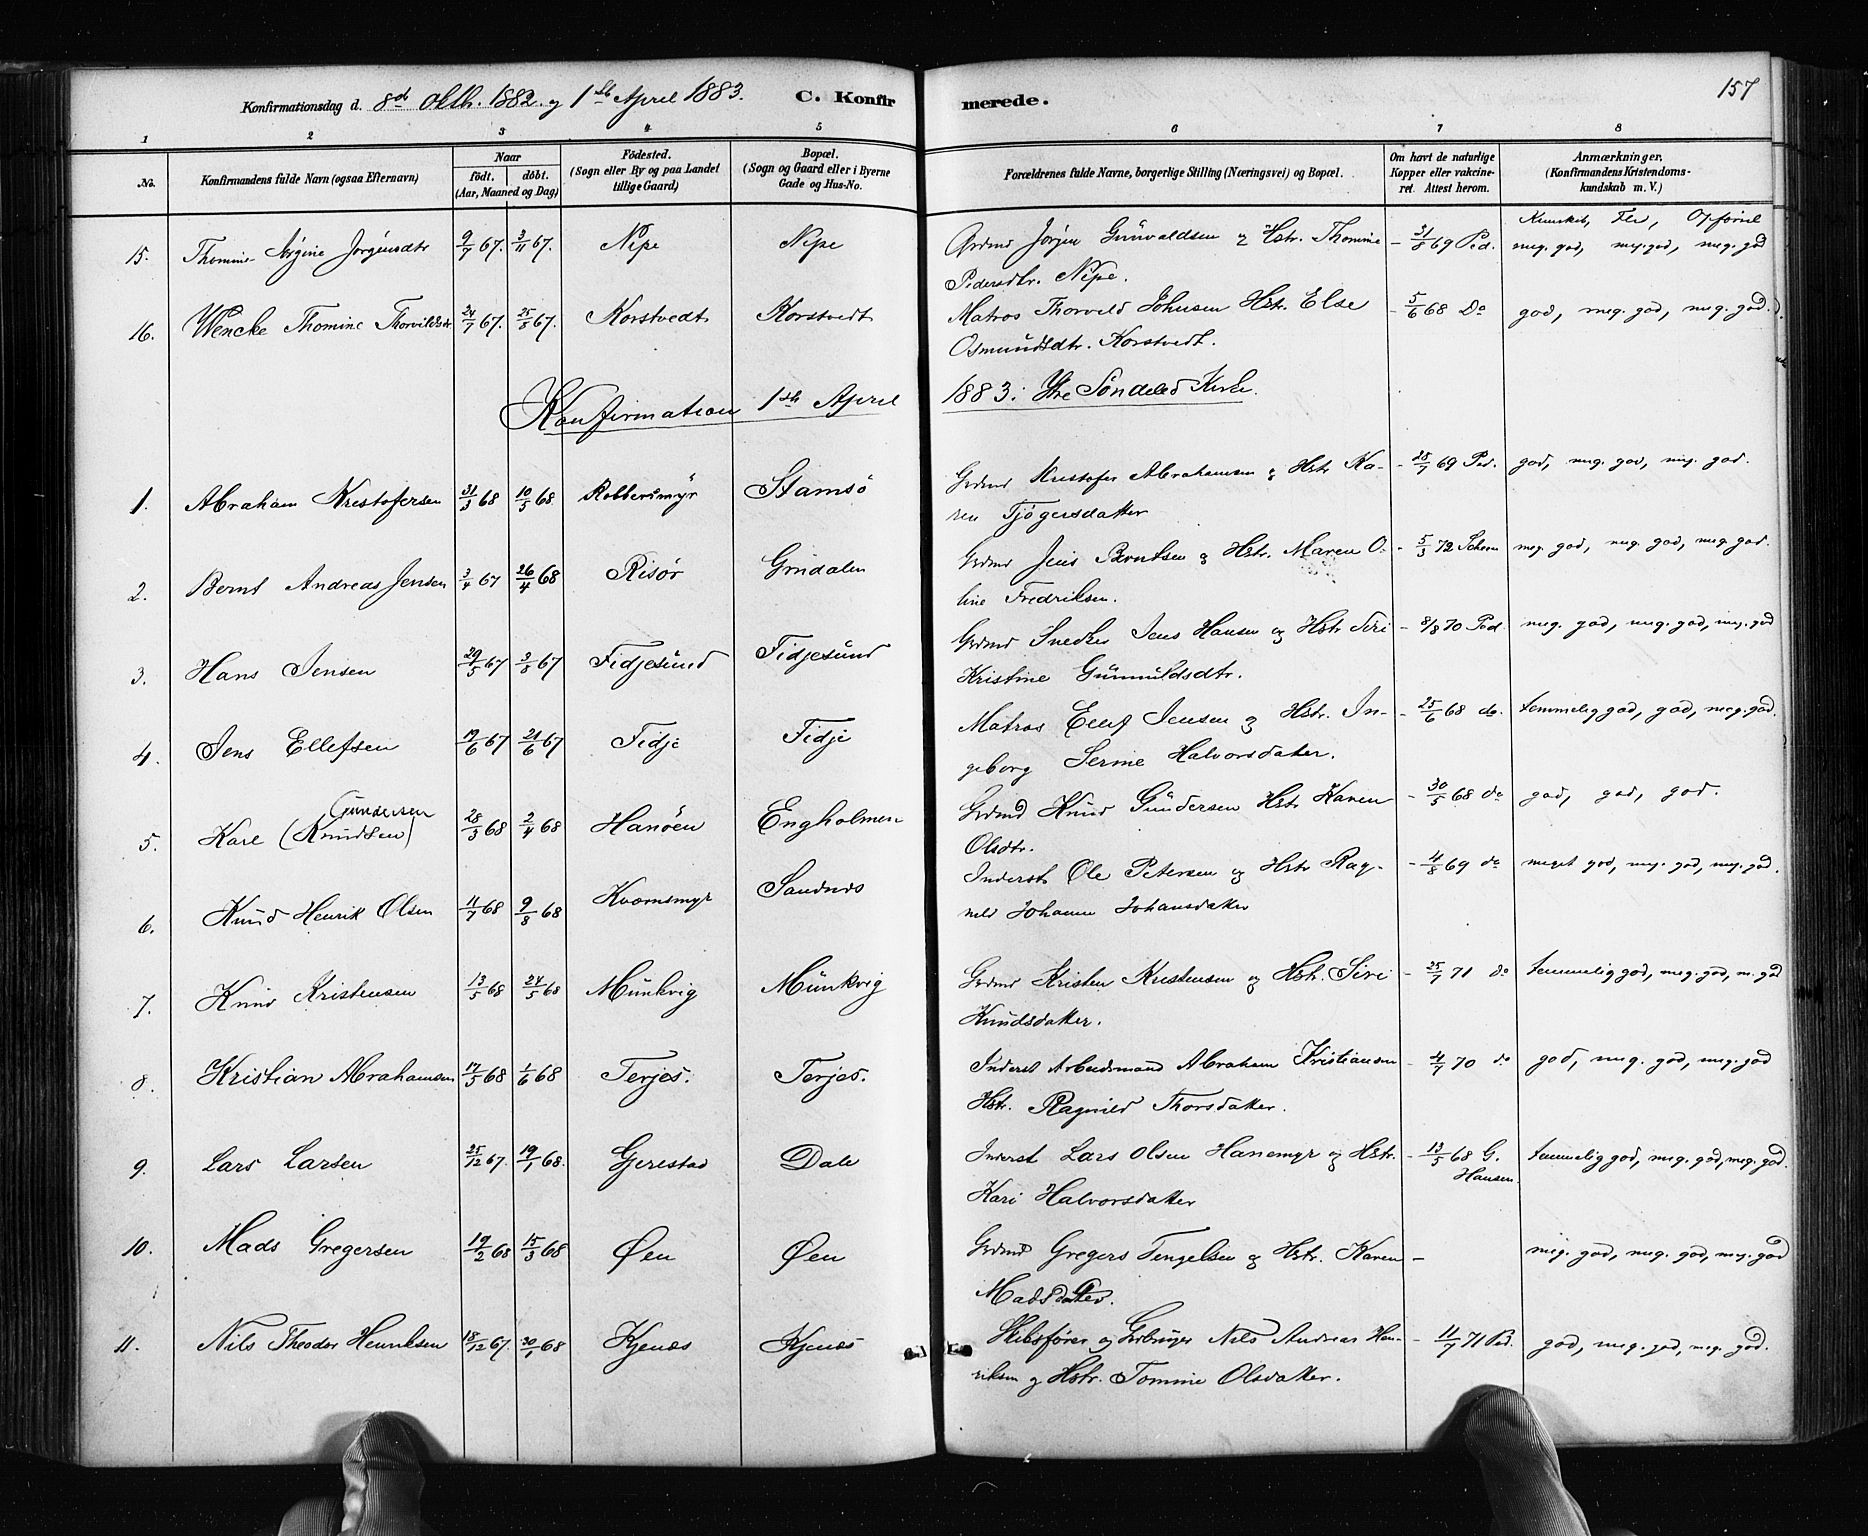 157
Konfirmationsdag d. 8d Oktb. 1882 og 1ste April 1883. C. Konfirmerede.
1 2 3 4 5 6 7 8
No. Konfirmandens fulde Navn (ogsaa Efternavn) Naar födt. döbt. (Aar, Maaned og Dag) Födested. (Sogn eller By og paa Landet tillige Gaard) Bopæl. (Sogn og Gaard eller i Byerne Gade og Hus-No. Forældrenes fulde Navne, borgerlige Stilling (Næringsvei) og Bopæl. Om havt de naturlige Kopper eller vakcineret. Attest herom. Anmærkninger. (Konfirmandens Kristendomskundskab m. V.)
Kundsk., Flv, Opförsel
15. Thomine Jörgine Jörgensdtr 9/7 67. 3/11 67. Nipe Nipe Grdmd Jörgen Gunvaldsen og Hstr. Thomine - 31/8 69 Ped. meg. god, meg. god, meg. god
Pedersdtr. Nipe.
16. Wencke Thomine Thorvildsdtr 24/7 67. 25/8 67. Korstvedt Korstvedt Matros Thorvild Johnsen Hstr. Else - 5/6 68 Do god, meg. god, meg. god.
Osmundsdtr. Korstvedt.
Konfirmation 1ste April 1883. Ytre Söndeled Kirke.
1. Abraham Kristofersen 31/3 68 10/5 68. Robbersmyr Stamsö Grdmd Kristofer Abrahamsen og Hstr Ka- - 25/7 69 Ped. god, meg. god, meg. god.
ren Tjögersdatter
2. Bernt Andreas Jensen 3/4 67 26/4 68 Risör Grindalen Grdmd Jens Berntsen og Hstr. Maren O- - 5/3 72 meg. god, meg. god, meg. god.
line Fredriksen.
3. Hans Jensen 29/5 67 3/8 67 Fidjesund Fidjesund Grdmd Snedker Jens Hansen og Hstr Siri - 8/8 70 Ped. meg. god, meg. god, meg. god
Kristine Gunnuldsdtr.
4. Jens Ellefsen 19/6 67 21/6 67 Fidje Fidje Matros Ellef Jensen og Hstr. In- - 25/6 68 do. temmelig god, god, meg. god.
geborg Serine Halvorsdatter.
Gundersen
5. Karl (Knudsen) 28/3 68 2/4 68 Hanöen Engholmen Grdmd Knud Gundersen Hstr Karen - 30/5 68 do god, god, god.
Olsdtr.
6. Knud Henrik Olsen 11/7 68 9/8 68 Kvernsmyr Sandnes Inderst Ole Petersen og Hstr Rag- - 4/8 69 do meget god, meg. god, meg. god.
nild Johanne Johansdatter
7. Knud Kristensen 13/5 68 24/5 68 Munkvig Munkvig Grdmd Kristen Kristensen og Hstr. Siri - 25/7 71 do temmelig god, meg. god, m. god
Knudsdatter.
8. Kristian Abrahamsen 17/5 68 1/6 68 Terjes. Terjes. Inderst Arbeidsmand Abraham Kristiansen - 4/7 70 do god, meg. god, meg. god
Hstr. Ragnild Thorsdatter.
9. Lars Larsen 25/12 67. 19/1 68. Gjerestad Dale Inderst Lars Olsen Hanemyr og Hstr. - 13/5 68 G. Hansen temmelig god, meg. god, meg. god.
Kari Halvorsdatter
10. Mads Gregersen 19/2 68 15/3 68 Öen Öen Grdmd Gregers Tengelsen og Hstr. Karen - meg. god, meg. god, meg. god
Madsdatter.
11. Nils Theodor Henriksen 18/12 67. 30/1 68 Kjenæs Kjenæs Skibsförer og Grdbruger Nils Andreas Hen- - 11/7 71 Ped. god, meg. god, meg. god.
riksen og Hstr. Tomine Olsdatter.